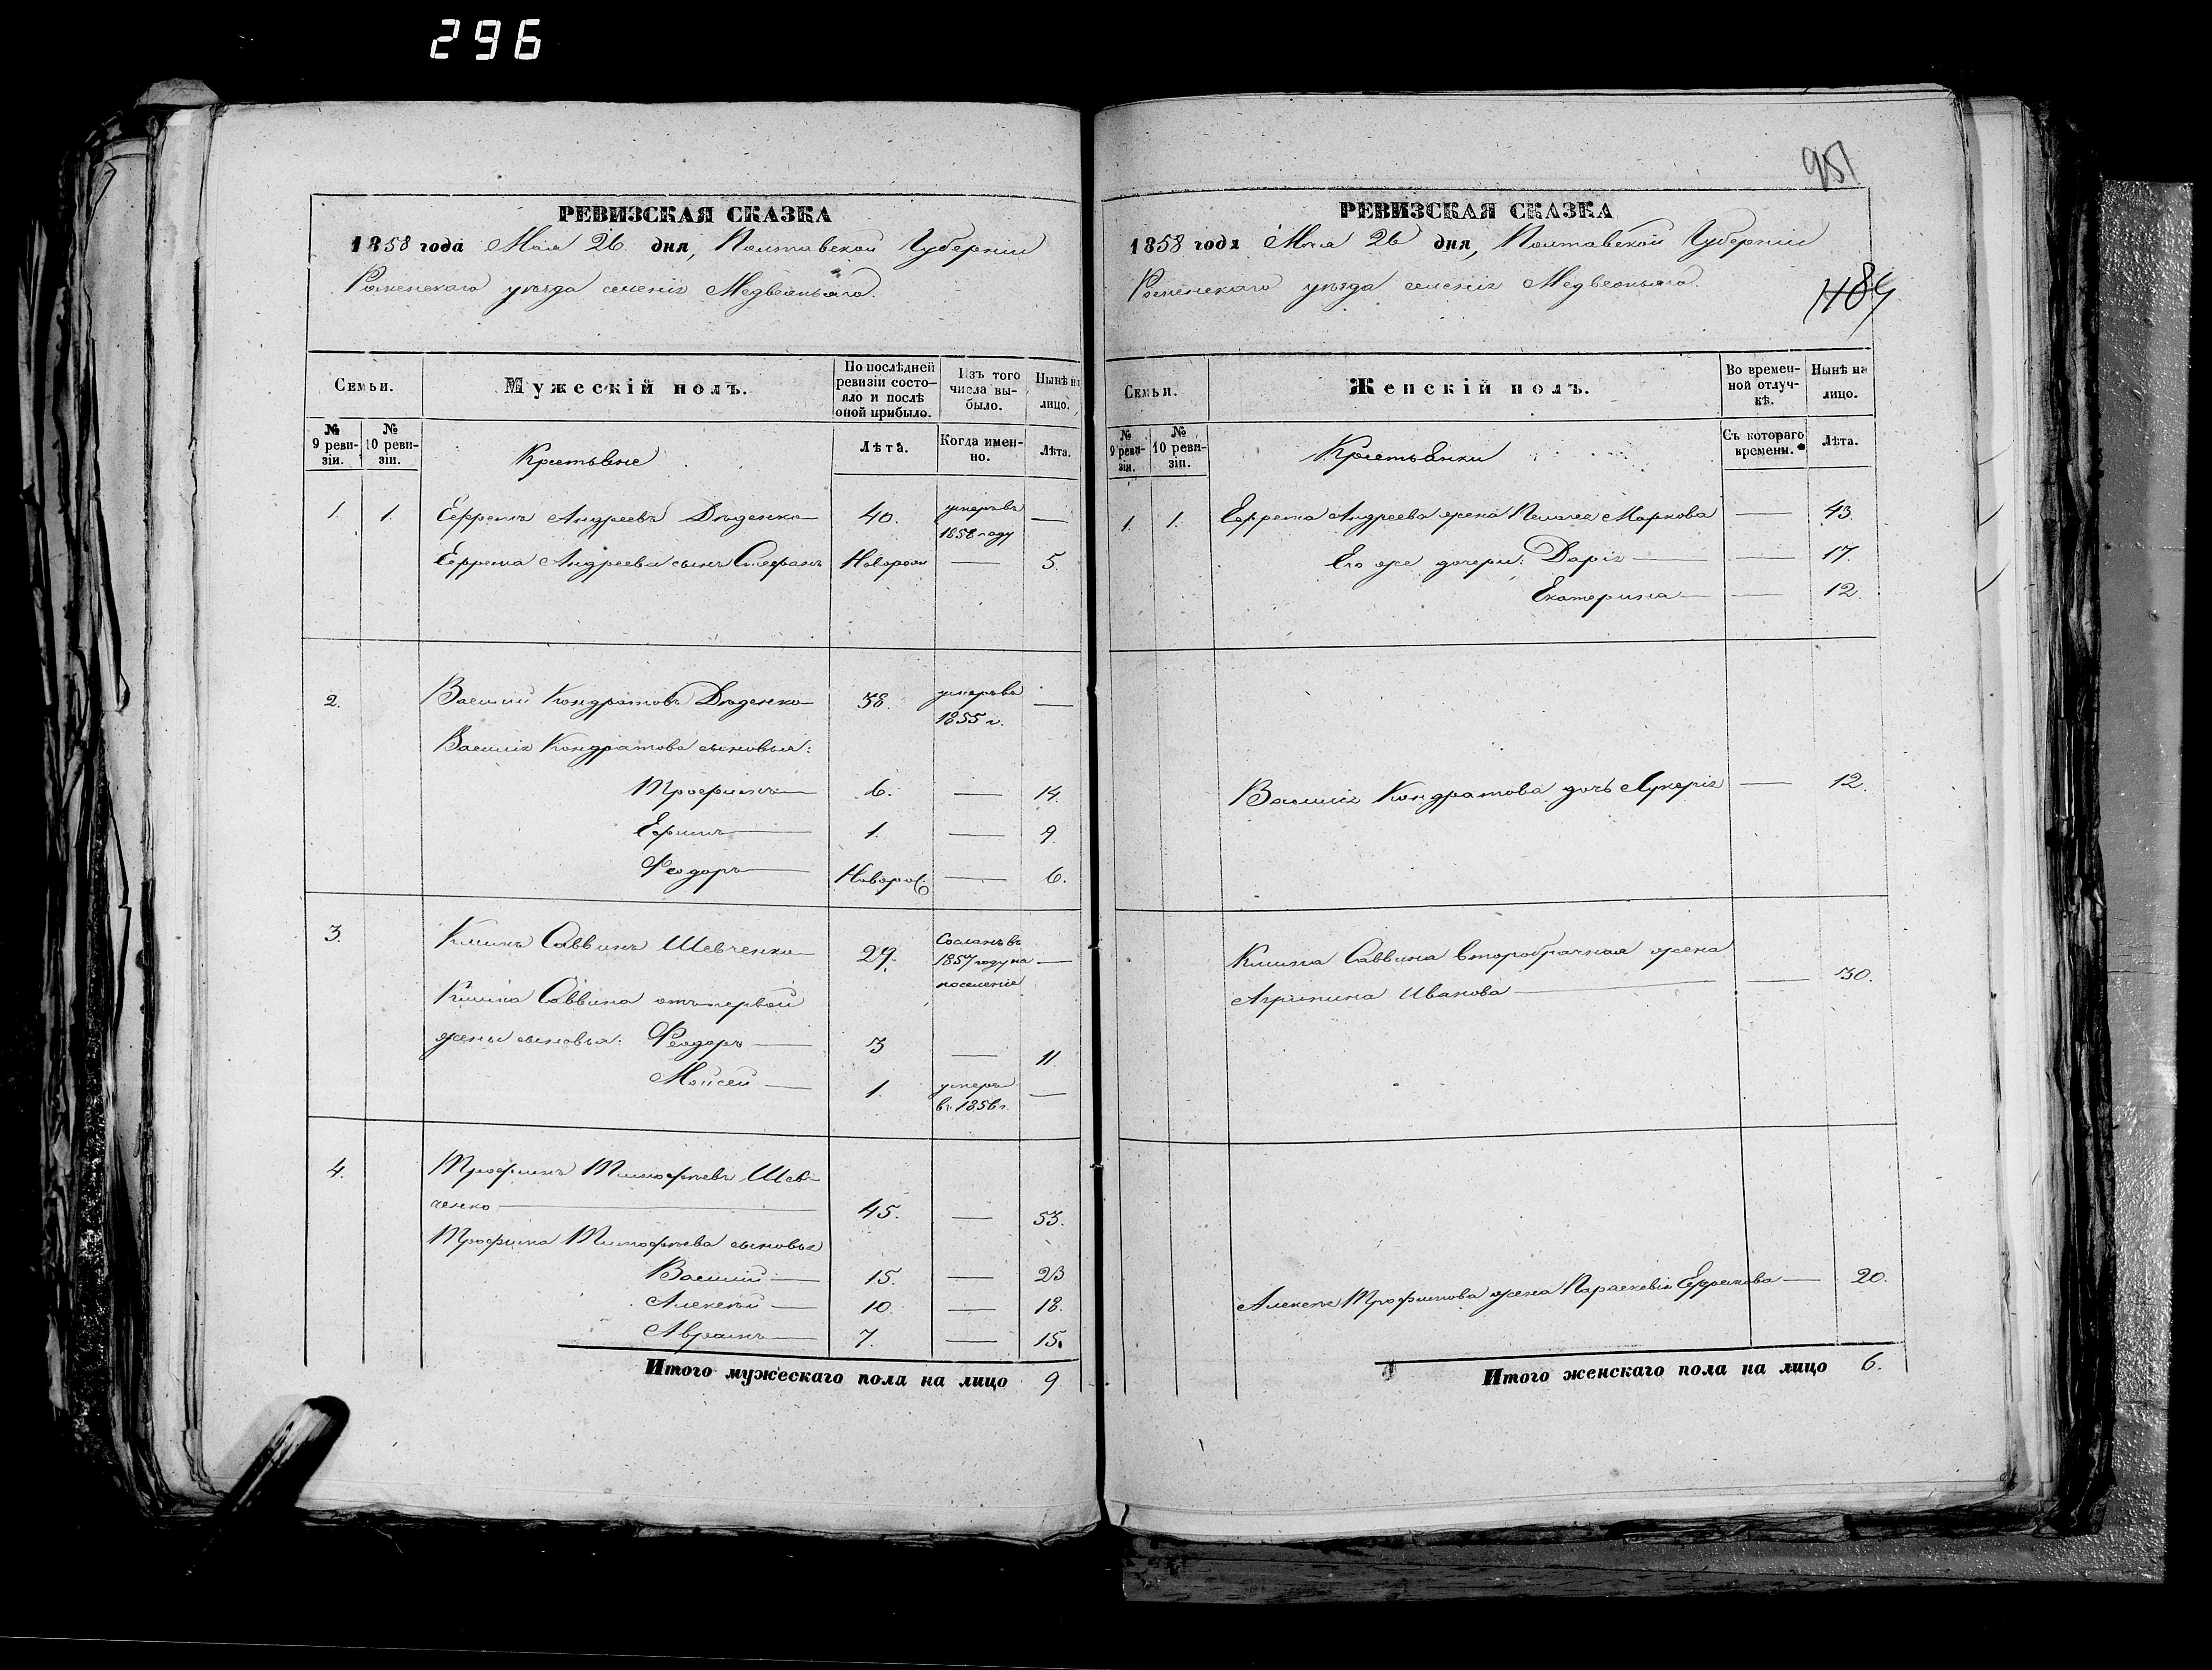 296
РЕВИЗСКАЯ СКАЗКА
1858 года Мая 26. дня, Полтавской Губерніи
Роменскаго уѣзда селенія Медвежьяго.
Семьи.
Мужескій полъ.
По послѣдней ревизіи состо-
яло и послѣ оной прибыло.
Изъ того числа вы-
было.
Нынѣ на лицо.
№ 9 реви-
зіи.
№ 10 реви-
зіи.
Крестьяне
Лѣта.
Когда имен-
но.
Лѣта.
1. 1. Ефремъ Андреевъ Дѣденко 40. умеръ въ —
1858 году
Ефрема Андреева сынъ Стефанъ Новорож — 5.
2. Василий Кондратовъ Дѣденко 38. умеръ въ —
1855 г.
Василія Кондратова сыновья:
Трофимъ 6. — 14.
Ефимъ 1. — 9.
Феодоръ Новорож. — 6.
3. Климъ Саввинъ Шевченко 29. Сосланъ въ
1857 году на —
поселеніе
Клима Саввина отъ первой
жены сыновья: Феодоръ 3 — 11.
Мойсей 1. умеръ —
въ 1856 г.
4. Трофимъ Тимофѣевъ Шев-
ченко 45. — 53.
Трофима Тимофѣева сыновья
Василій 15. — 23
Алексѣй 10. — 18.
Аврамъ 7. — 15.
Итого мужескаго пола на лицо 9
951
РЕВИЗСКАЯ СКАЗКА
1858 года Мая 26 дня, Полтавской Губерніи
Роменскаго уѣзда селенія Медвежьяго.
Семьи.
Женскій полъ.
Во времен-
ной отлуч-
кѣ.
Нынѣ на лицо.
№ 9 реви-
зіи.
№ 10 реви-
зіи.
Крестьянки
Съ котораго времени.
Лѣта.
1. 1. Ефрема Андреева жена Пелагея Маркова — 43.
Его же дочери: Дарія — 17.
Екатерина — 12.
Василія Кондратова дочь Лукерія — 12.
Клима Саввина второбрачная жена
Агрипина Иванова — 30.
Алексѣя Трофимова жена Параскевія Ефремова — 20.
Итого женскаго пола на лицо 6.